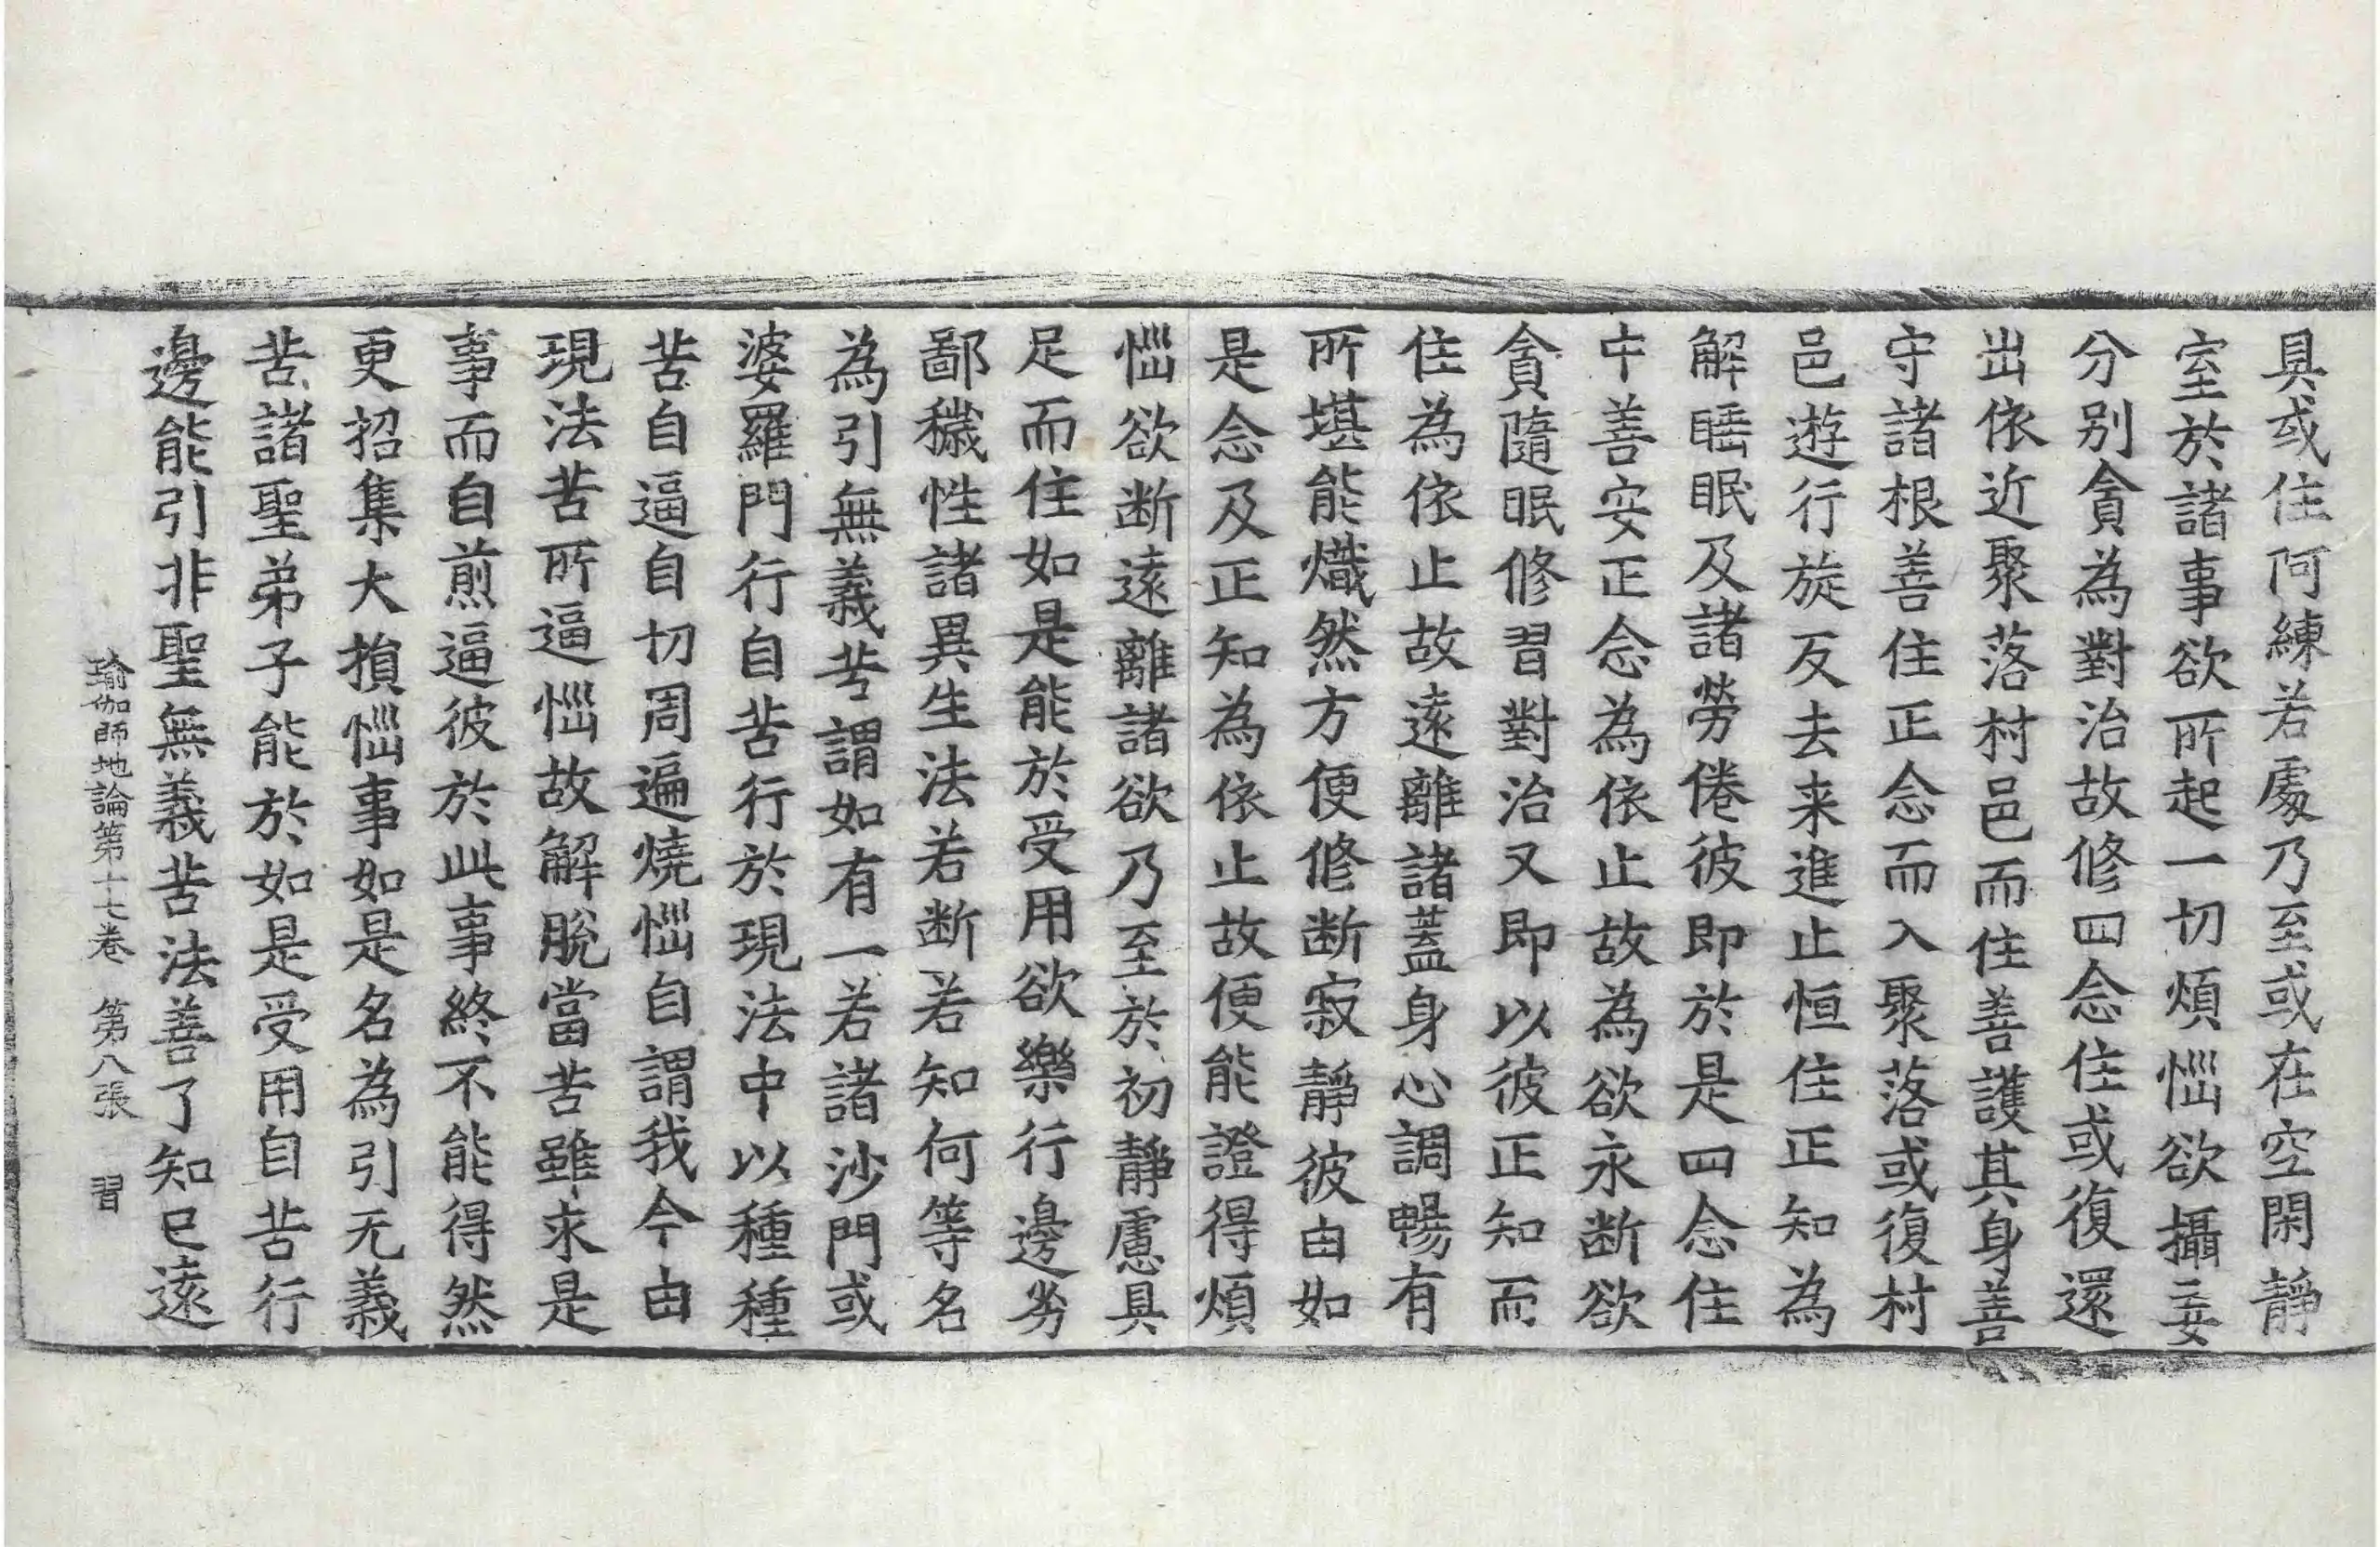 具或住阿練若處乃至或在空閑靜
室於諸事欲所起一切煩惱欲攝妄
分別貪為對治故修四念住或復還
出依近聚落村邑而住善護其身善
守諸根善住正念而入聚落或復村
邑遊行旋反去来進止恒住正知為
解睡眠及諸勞倦彼即於是四念住
中善安正念為依止故為欲永断欲
貪隨眠修習對治又即以彼正知而
住為依止故遠離諸蓋身心調暢有
所堪能熾然方便修断寂靜彼由如
是念及正知為依止故便能證得煩
惱欲断遠離諸欲乃至於初靜慮具
足而住如是能於受用欲樂行邊劣
鄙穢性諸異生法若断若知何等名
為引無義苦謂如有一若諸沙門或
婆羅門行自苦行於現法中以種種
苦自逼自切周遍燒惱自謂我今由
現法苦所逼惱故解脫當苦雖求是
事而自煎逼彼於此事終不能得然
更招集大損惱事如是名為引无義
苦諸聖弟子能於如是受用自苦行
邊能引非聖無義苦法善了知已遠
瑜伽師地論第十七卷　第八張　習